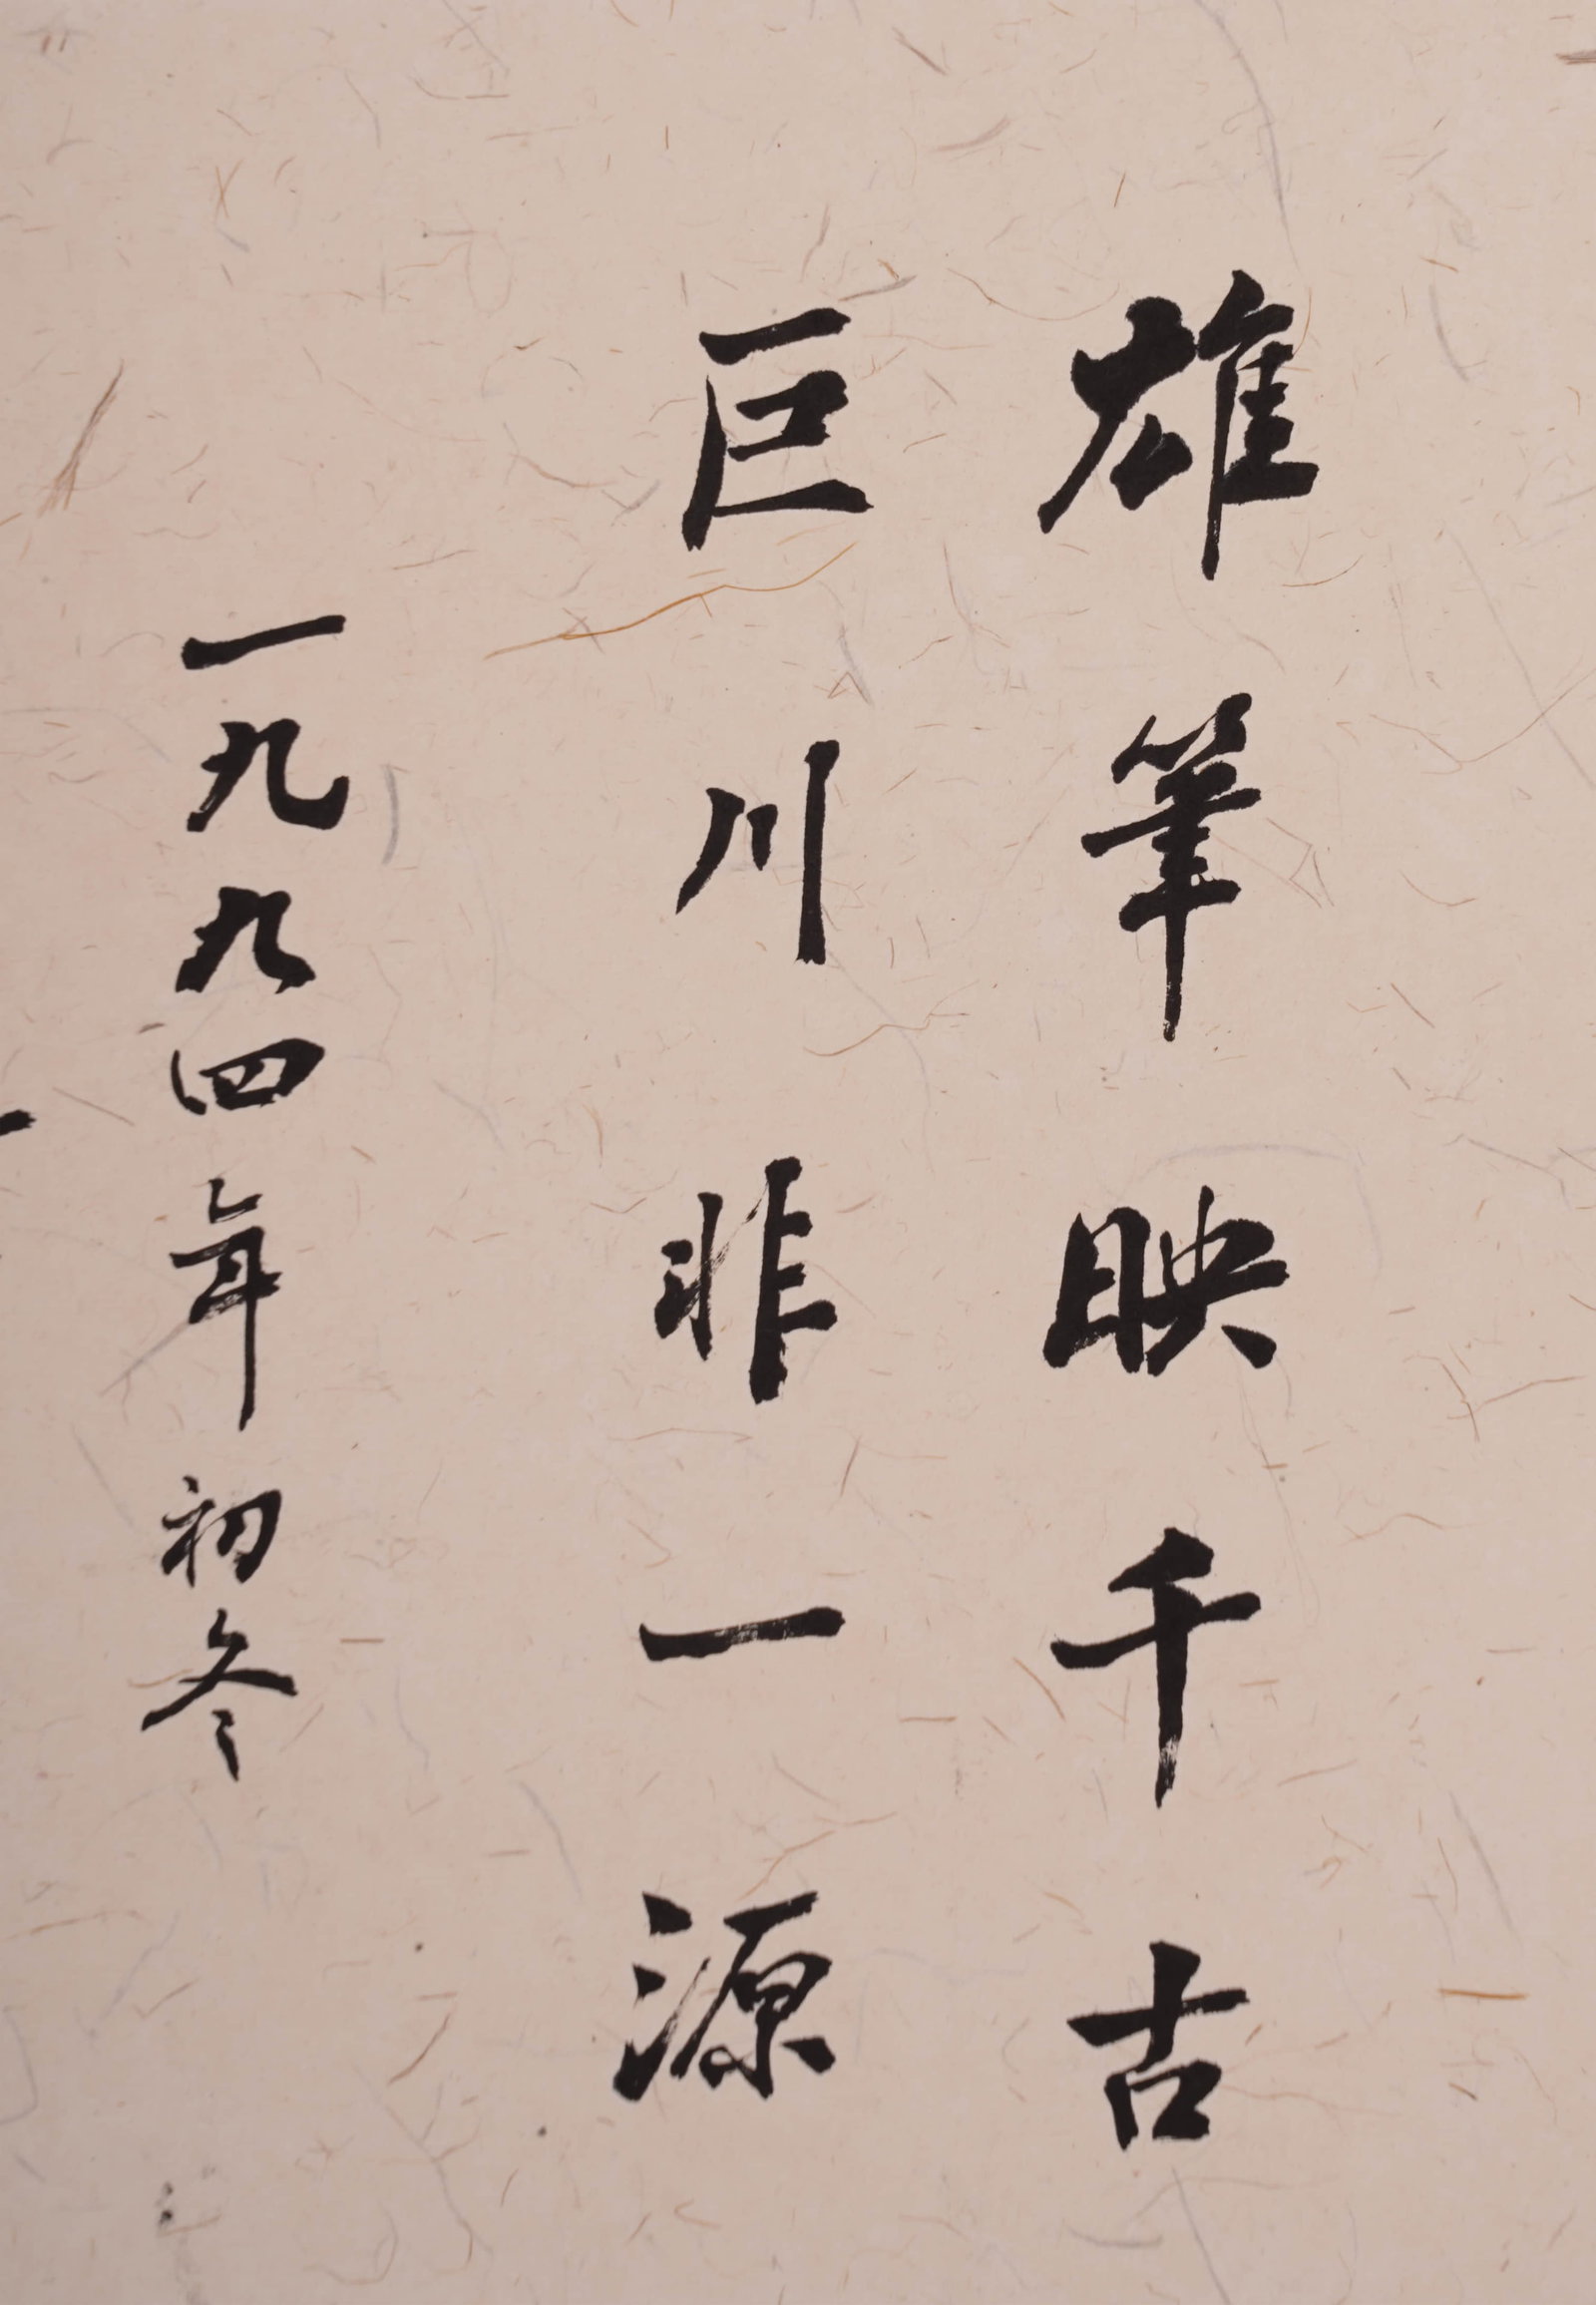 雄筆映千古
巨川非一源
一九九四年初冬